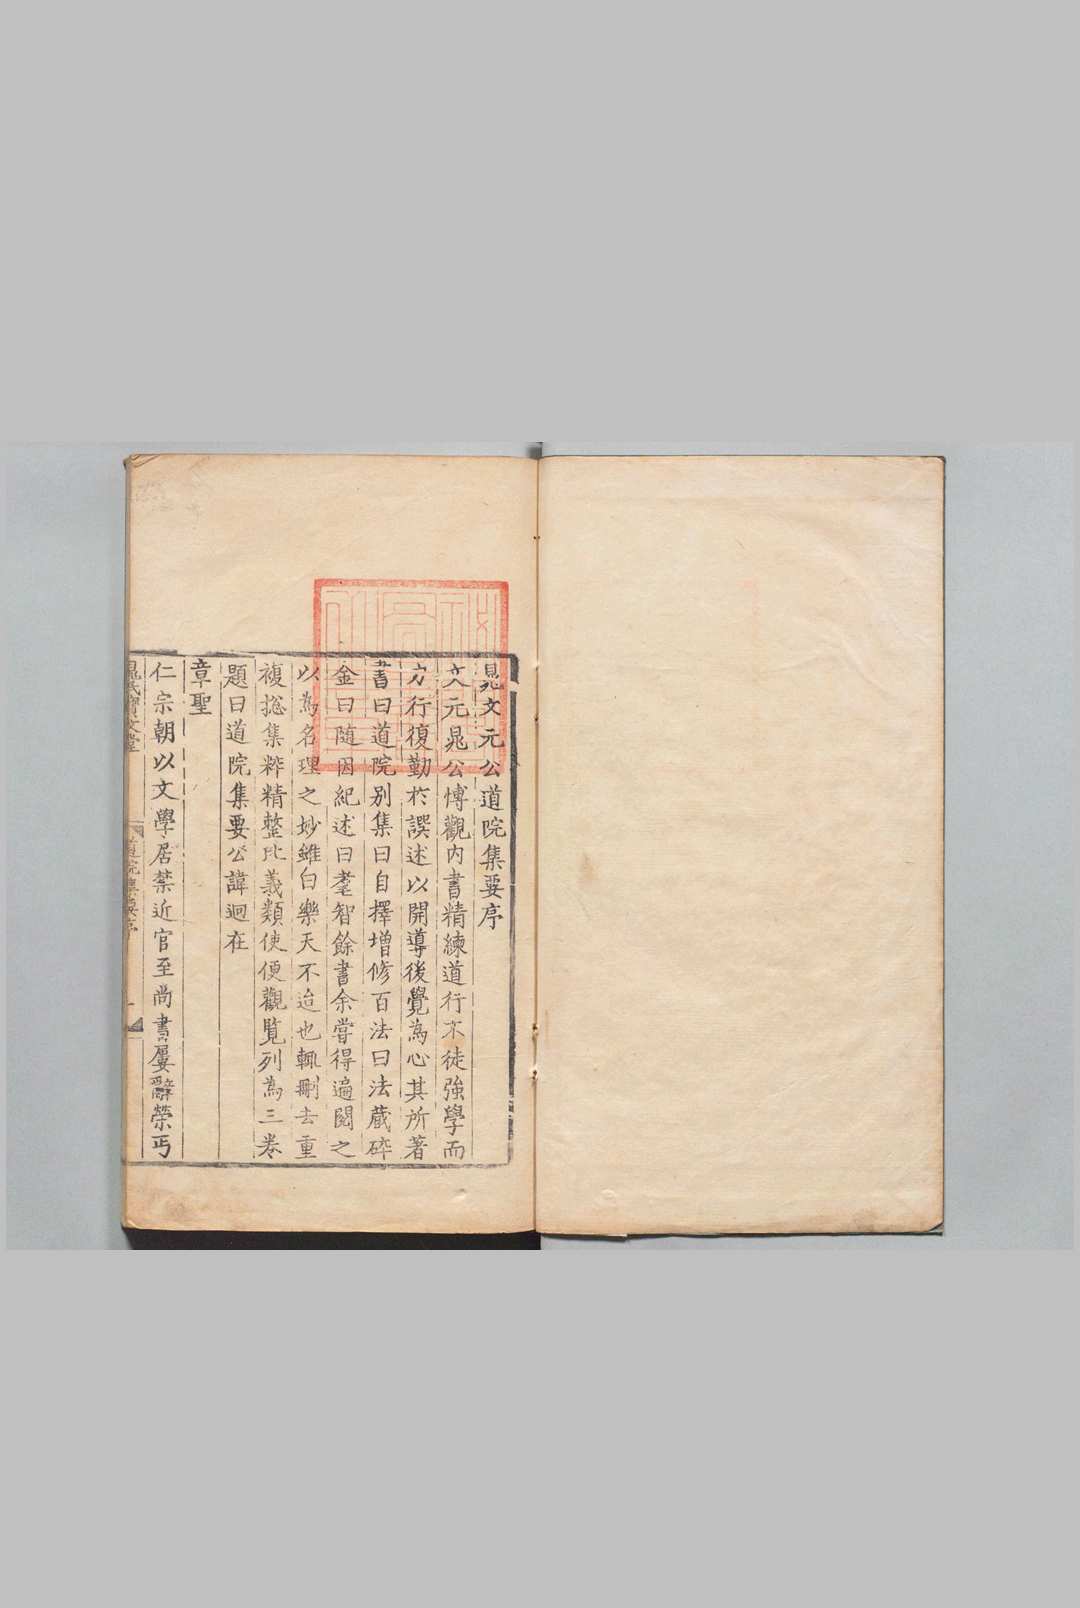 晁文元公道院集要序
文元晁公愽觀内書精練道行不徒強學而
力行復勤於譔述以開導後覺為心其所著
書曰道院别集曰自擇增修百法曰法蔵碎
金曰隨因紀述曰耄智餘書余嘗得遍閱之
以為名理之妙雖白樂天不迨也輒刪去重
複揔集粹精整比義類使便觀覧列為三卷
題曰道院集要公諱迥在
章聖
仁宗朝以文學居禁近官至尚書屢辭榮丐
晁氏寳文堂
道院集要序